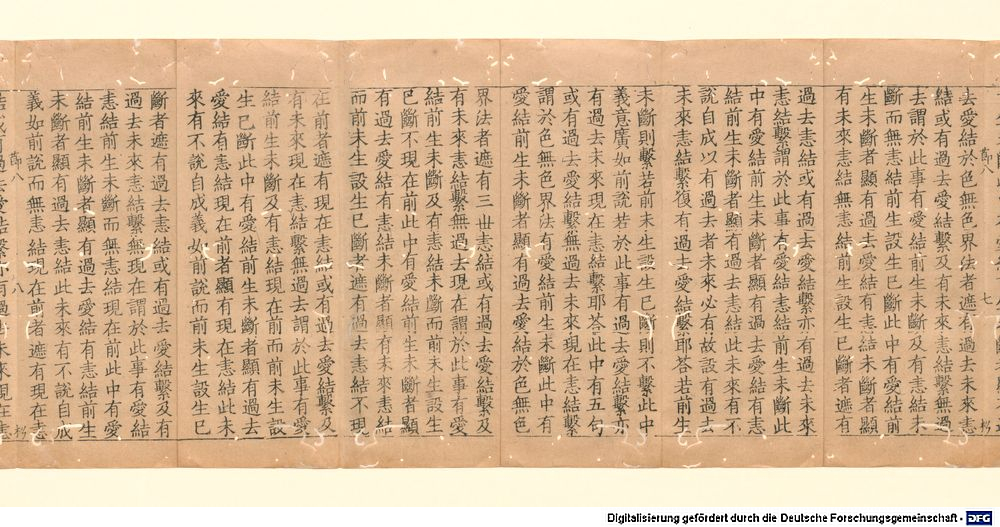 去愛結於色無色界法者遮有過去未來恚
結或有過去愛結繫及有未來恚結繫無過
去謂於此事有愛結前生未斷及有恚結未
斷而無恚結前生設生已斷此中有愛結前
生未斷者顯有過去愛結有恚結未斷者顯
有未來恚結而無恚結前生設生已斷者遮有
過去恚結或有過去愛結繫亦有過去未來
恚結繫謂於此事有愛結恚結前生未斷此
中有愛結前生未斷者顯有過去愛結有恚
結前生未斷者顯有過去恚結此未來有不
說自成以有過去者未來必有故設有過去
未來恚結繫復有過去愛結繫耶荅若前生
未斷則繫若前未生設生已斷則不繫此中
義竟廣如前說若於此事有過去愛結繫亦
有過去未來現在恚結繫耶荅此中有五句
或有過去愛結繫無過去未來現在恚結繫
謂於色無色界法有愛結前生未斷此中有
愛結前生未斷者顯有過去愛結於色無色
界法者遮有三世恚結或有過去愛結繫及
有未來恚結繫無過去現在謂於此事有愛
結前生未斷及有恚結未斷而前未生設生
已斷不現在前此中有愛結前生未斷者顯
有過去愛結有恚結未斷者顯有未來恚結
而前未生設生已斷者遮有過去恚結不現
在前者遮有現在恚結或有過去愛結繫及
有未來現在恚結繫無過去謂於此事有愛
結前生未斷及有恚結現在前而前未生設
生已斷此中有愛結前生未斷者顯有過去
愛結有恚結現在前者顯有現在恚結此未
來有不說自成義如前說而前未生設生已
斷者遮有過去恚結或有過去愛結繫及有
過去未來恚結繫無現在謂於此事有愛結
恚結前生未斷而無恚結現在前此中有愛
結前生未斷者顯有過去愛結有恚結前生
未斷者顯有過去恚結此未來有不說自成
義如前說而無恚結現在前者遮有現在恚
Digitalisierung gefördert durch die Deutsche Forschungsgemeinschaft - DFG